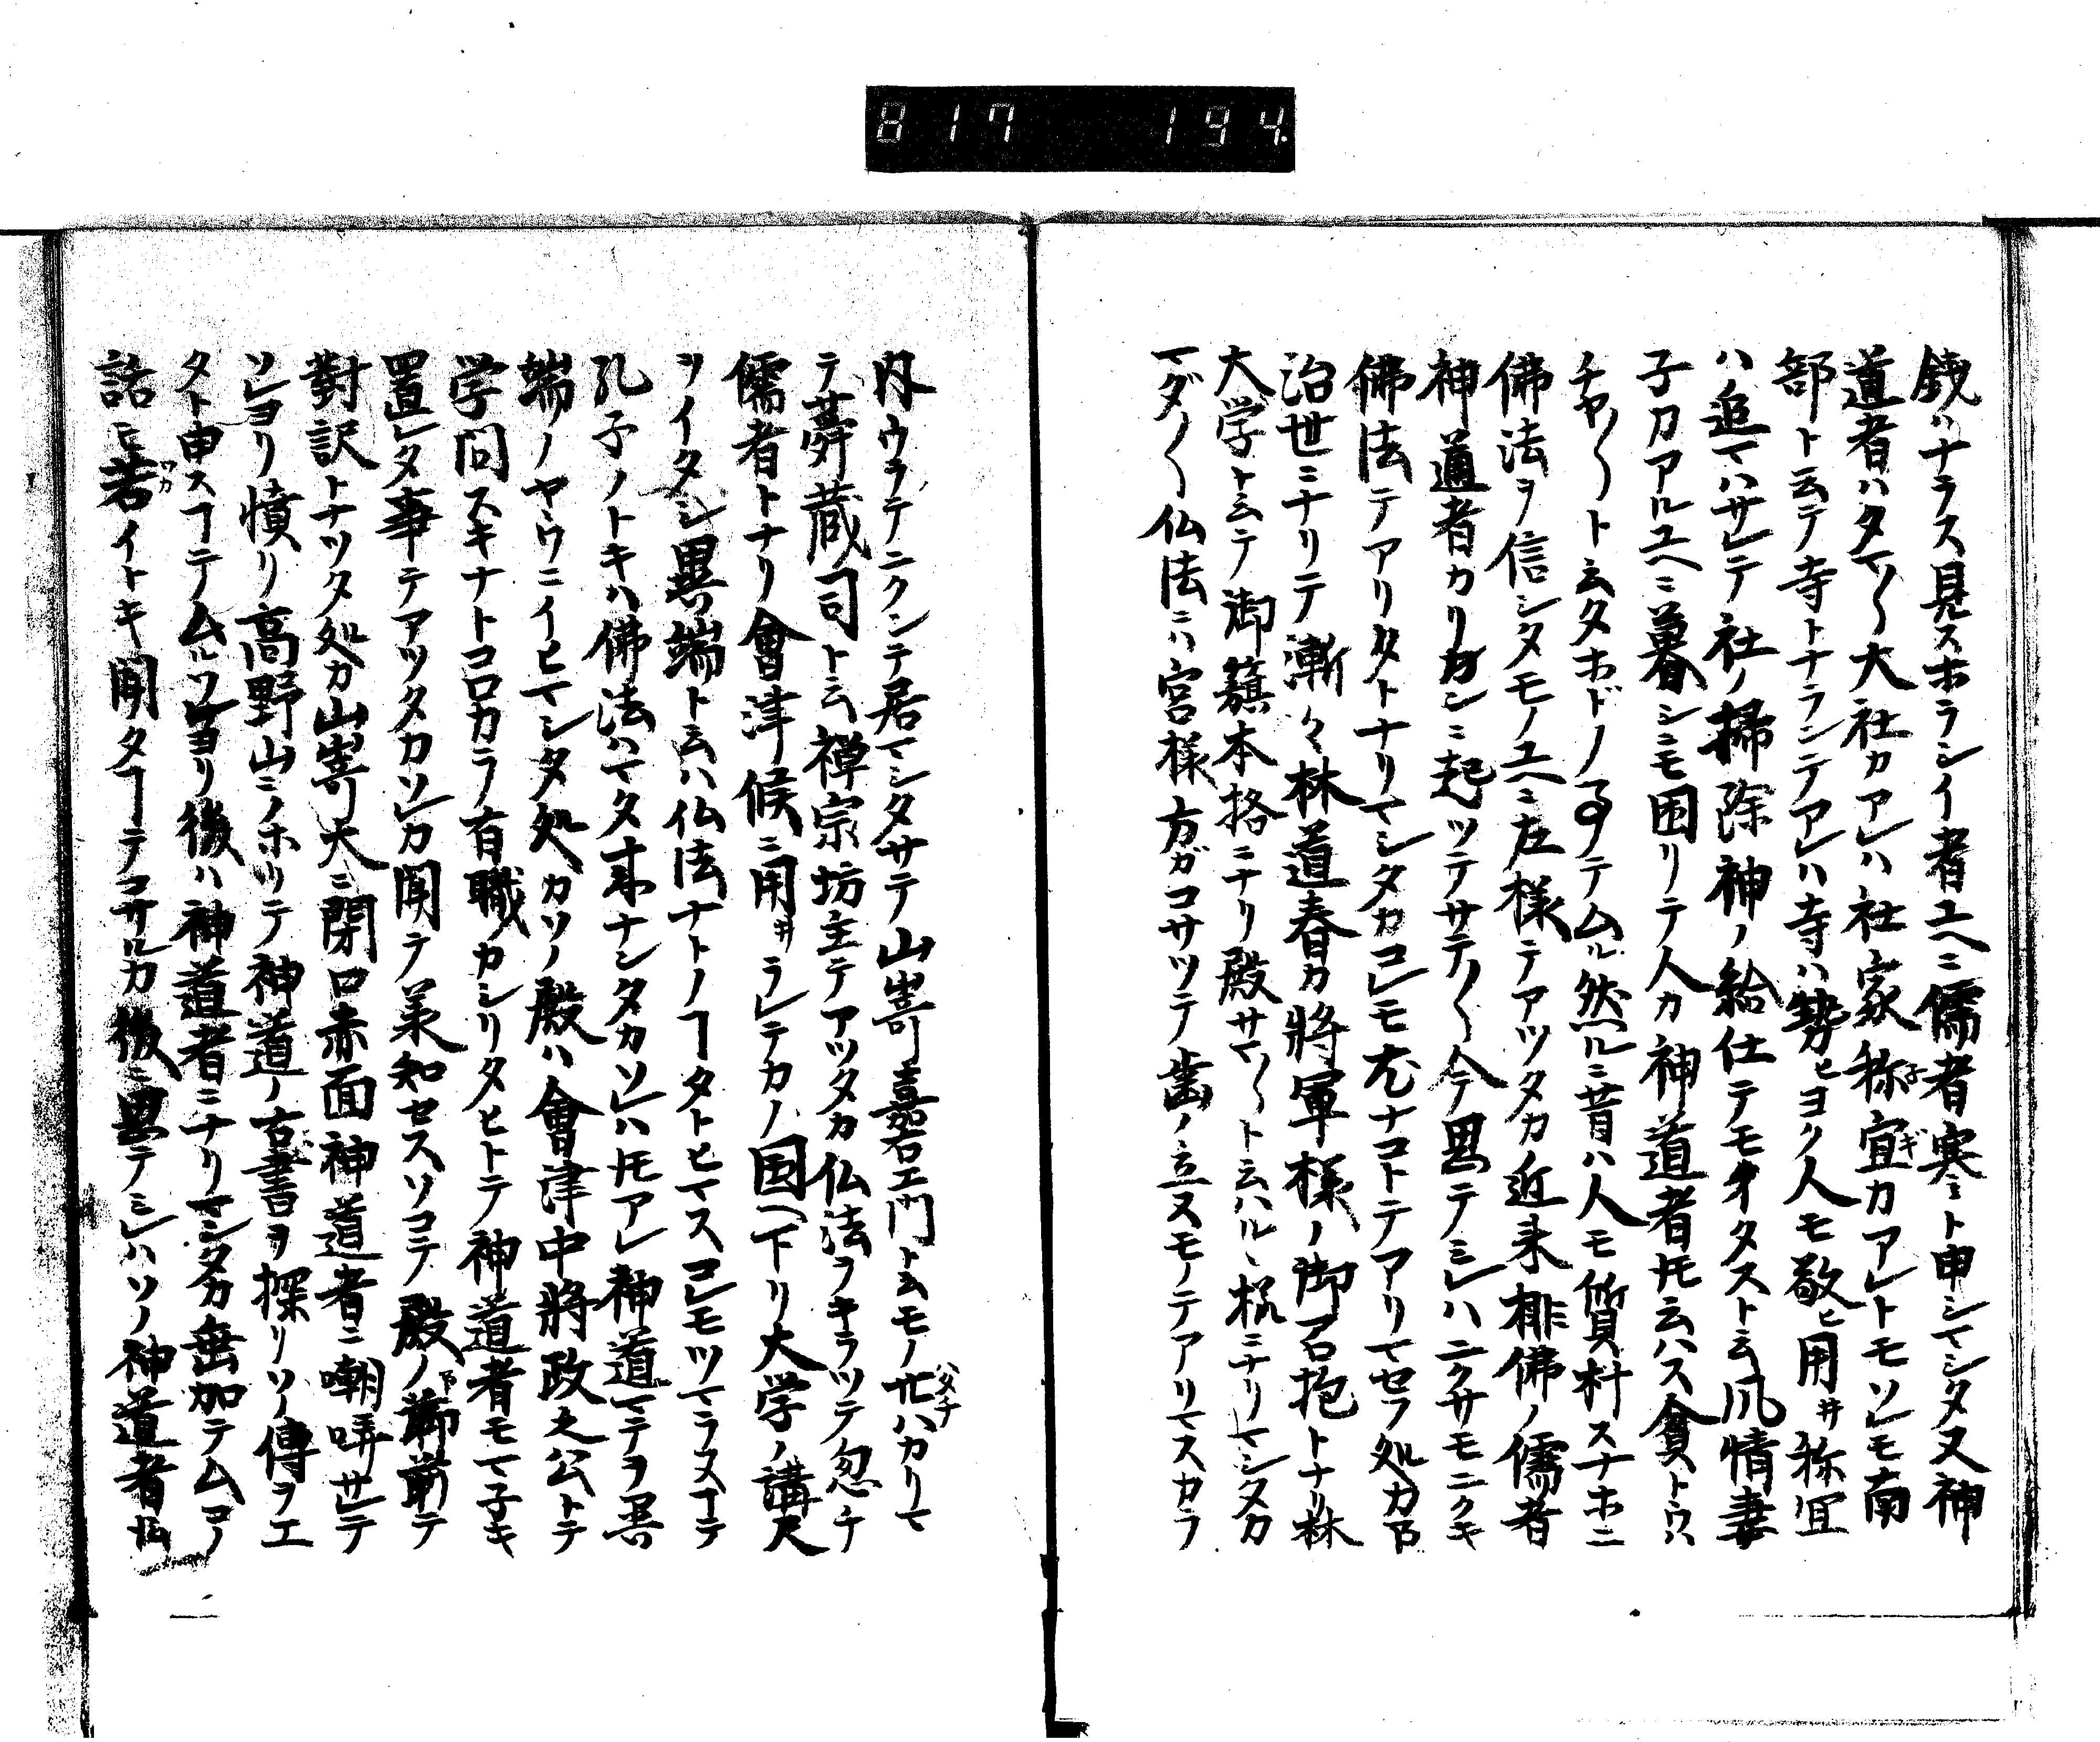 817 194
銭ハナラス見スホラシイ者ユヘニ儒者寒ミト申シマシタ又神
道者ハタマ〱大社カアレハ社家祢宜カアレトモソレモ両
部ト云テ寺トナランテアレハ寺ハ勢ヒヨク人モ敬ヒ用ヰ祢宜
ハ追マハサレテ社ノ掃除神ノ給仕テモイタスト云風情妻
子カアルユヘニ暮シニモ困リテ人カ神道者トモ云ハス貧トウハ
チヤ〱ト云タホドノ事テムル然ルニ昔ハ人モ質朴スナホニ
佛法ヲ信シタモノユヘニ左様テアツタカ近来排佛ノ儒者
神道者カリカシニ起ツテサテ〱今テ思テミレハニクサモニクキ
佛法テアリタトナリマシタカコレモ尤ナコトテアリマセフ処カ下
治世ニナリテ漸々林道春カ將軍様ノ御召抱トナリ林
大学ト云テ御籏本格ニナリ殿サマ〱ト云ハルヽ様ニナリマシタカ
マダ〱仏法ニハ宮様方ガコサツテ歯ノ立ヌモノテアリマスカラ
内ウラテニクンテ居マシタサテ山嵜嘉右エ門ト云モノ廿ハカリマ
テ蕣蔵司ト云禅宗坊主テアツタカ仏法ヲキラツテ忽チ
儒者トナリ會津候ニ用ヰラレテカノ国ヘ下リ大学ノ講尺
ヲイタシ異端ト云ハ仏法ナトノヿタトヒマスコレモツマラヌヿテ
孔子ノトキハ佛法ハマタ来ナンタカソレハトモアレ神道マテヲ異
端ノヤウニイヒマシタ処カソノ殿ハ會津中將政之公トテ
学問スキナトコロカラ有職ノカシリタヒトテ神道者モマ子キ
置レタ事テアツタカソレカ聞テ義知セスソコテ殿ノ御前テ
對訳トナツタ処カ山嵜大ニ閉口赤面神道者ニ嘲哢サレテ
ソレヨリ憤リ高野山ニノホリテ神道ノ古書ヲ探リソノ傳ヲエ
タト申スヿテムルソレヨリ後ハ神道者ニナリマシタカ垂加テムコノ
話ニ若イトキ聞タヿテコサルカ後ニ思テミレハソノ神道者仏